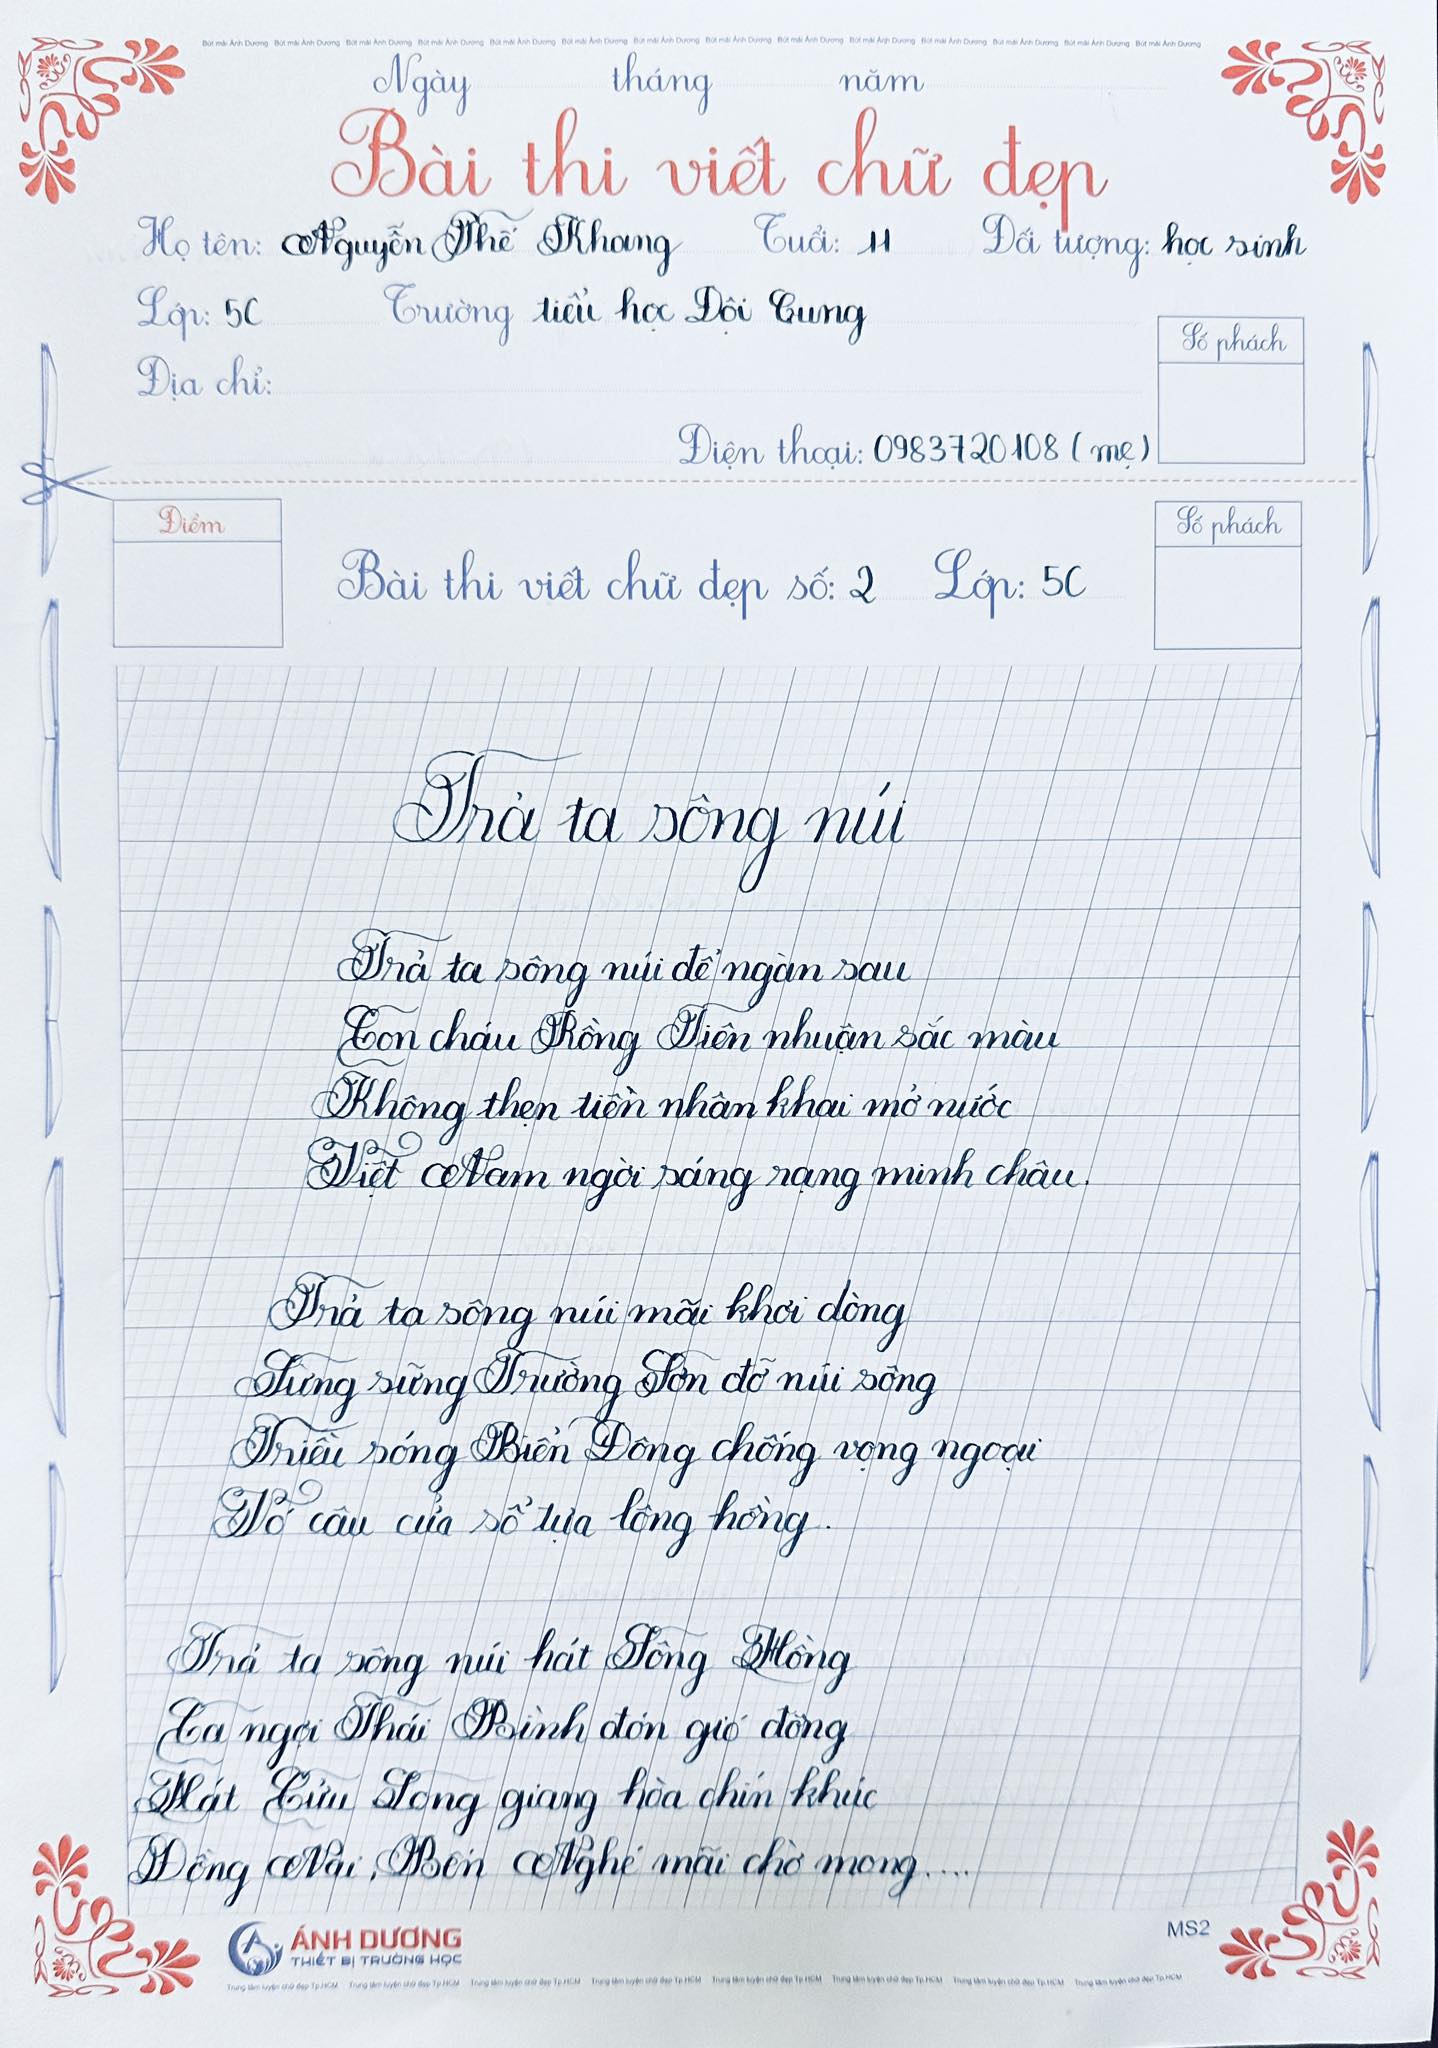 Bút mài Ánh Dương Bút mài Ánh Dương Bút mài Ánh Dương Bút mài Ánh Dương Bút mài Ánh Dương Bút mài Ánh Dương Bút mài Ánh Dương Bút mài Ánh Dương Bút mài Ánh Dương Bút mài Ánh Dương Bút mài Ánh Dương Bút mài Ánh Dương Bút mài Ánh Dương Bút mài Ánh Dương
Ngày tháng năm
Bài thi viết chữ đẹp
Họ tên: Nguyễn Thế Khang Tuổi: 11 Đối tượng: học sinh
Lớp: 5C Trường tiểu học Đội Cung
Số phách
Địa chỉ:
Điện thoại: 0983720108 (mẹ)
Điểm
Số phách
Bài thi viết chữ đẹp số: 2 Lớp: 5C
Trả ta sông núi
Trả ta sông núi để ngàn sau
Con cháu Rồng Tiên nhuận sắc màu
Không thẹn tiền nhân khai mở nước
Việt Nam ngời sáng rạng minh châu.
Trả ta sông núi mãi khơi dòng
Sừng sững Trường Sơn đỡ núi sông
Triều sóng Biển Đông chống vọng ngoại
Vó câu cửa sổ tựa lông hồng.
Trả ta sông núi hát Sông Hồng
Ca ngợi Thái Bình đón gió đông
Hát Cửu Long giang hòa chín khúc
Đồng Nai, Bến Nghé mãi chờ mong....
ÁNH DƯƠNG
THIẾT BỊ TRƯỜNG HỌC
MS2
Trung tâm luyện chữ đẹp Tp.HCM Trung tâm luyện chữ đẹp Tp.HCM Trung tâm luyện chữ đẹp Tp.HCM Trung tâm luyện chữ đẹp Tp.HCM Trung tâm luyện chữ đẹp Tp.HCM Trung tâm luyện chữ đẹp Tp.HCM Trung tâm luyện chữ đẹp Tp.HCM Trung tâm luyện chữ đẹp Tp.HCM